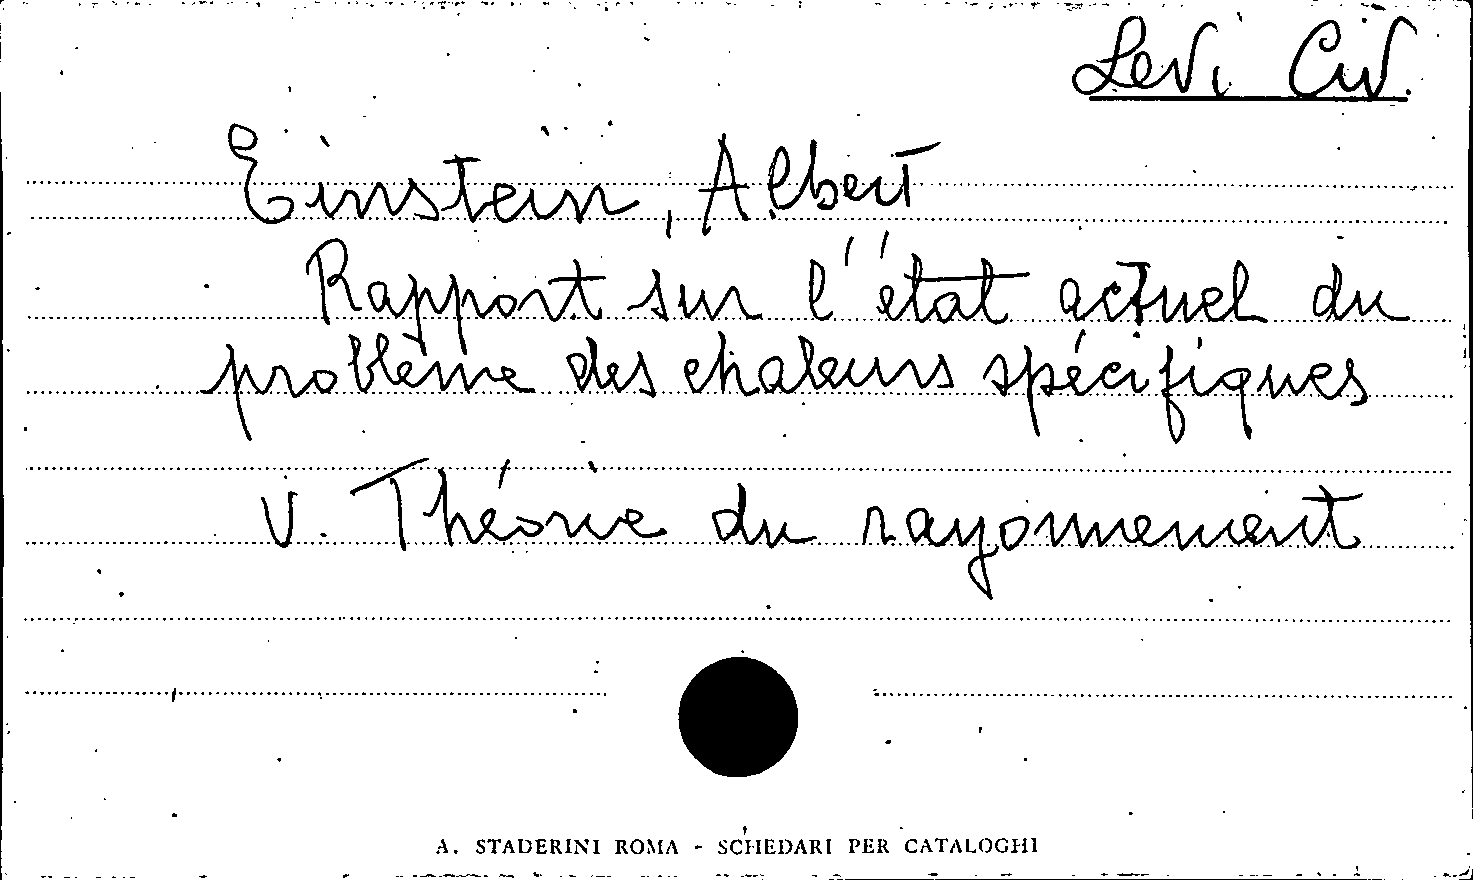 Levi Civ.
Einstein, Albert
Rapport sur l'état actuel du
problème des chaleurs spécifiques
V. Théorie du rayonnement
A. STADERINI ROMA - SCHEDARI PER CATALOGHI